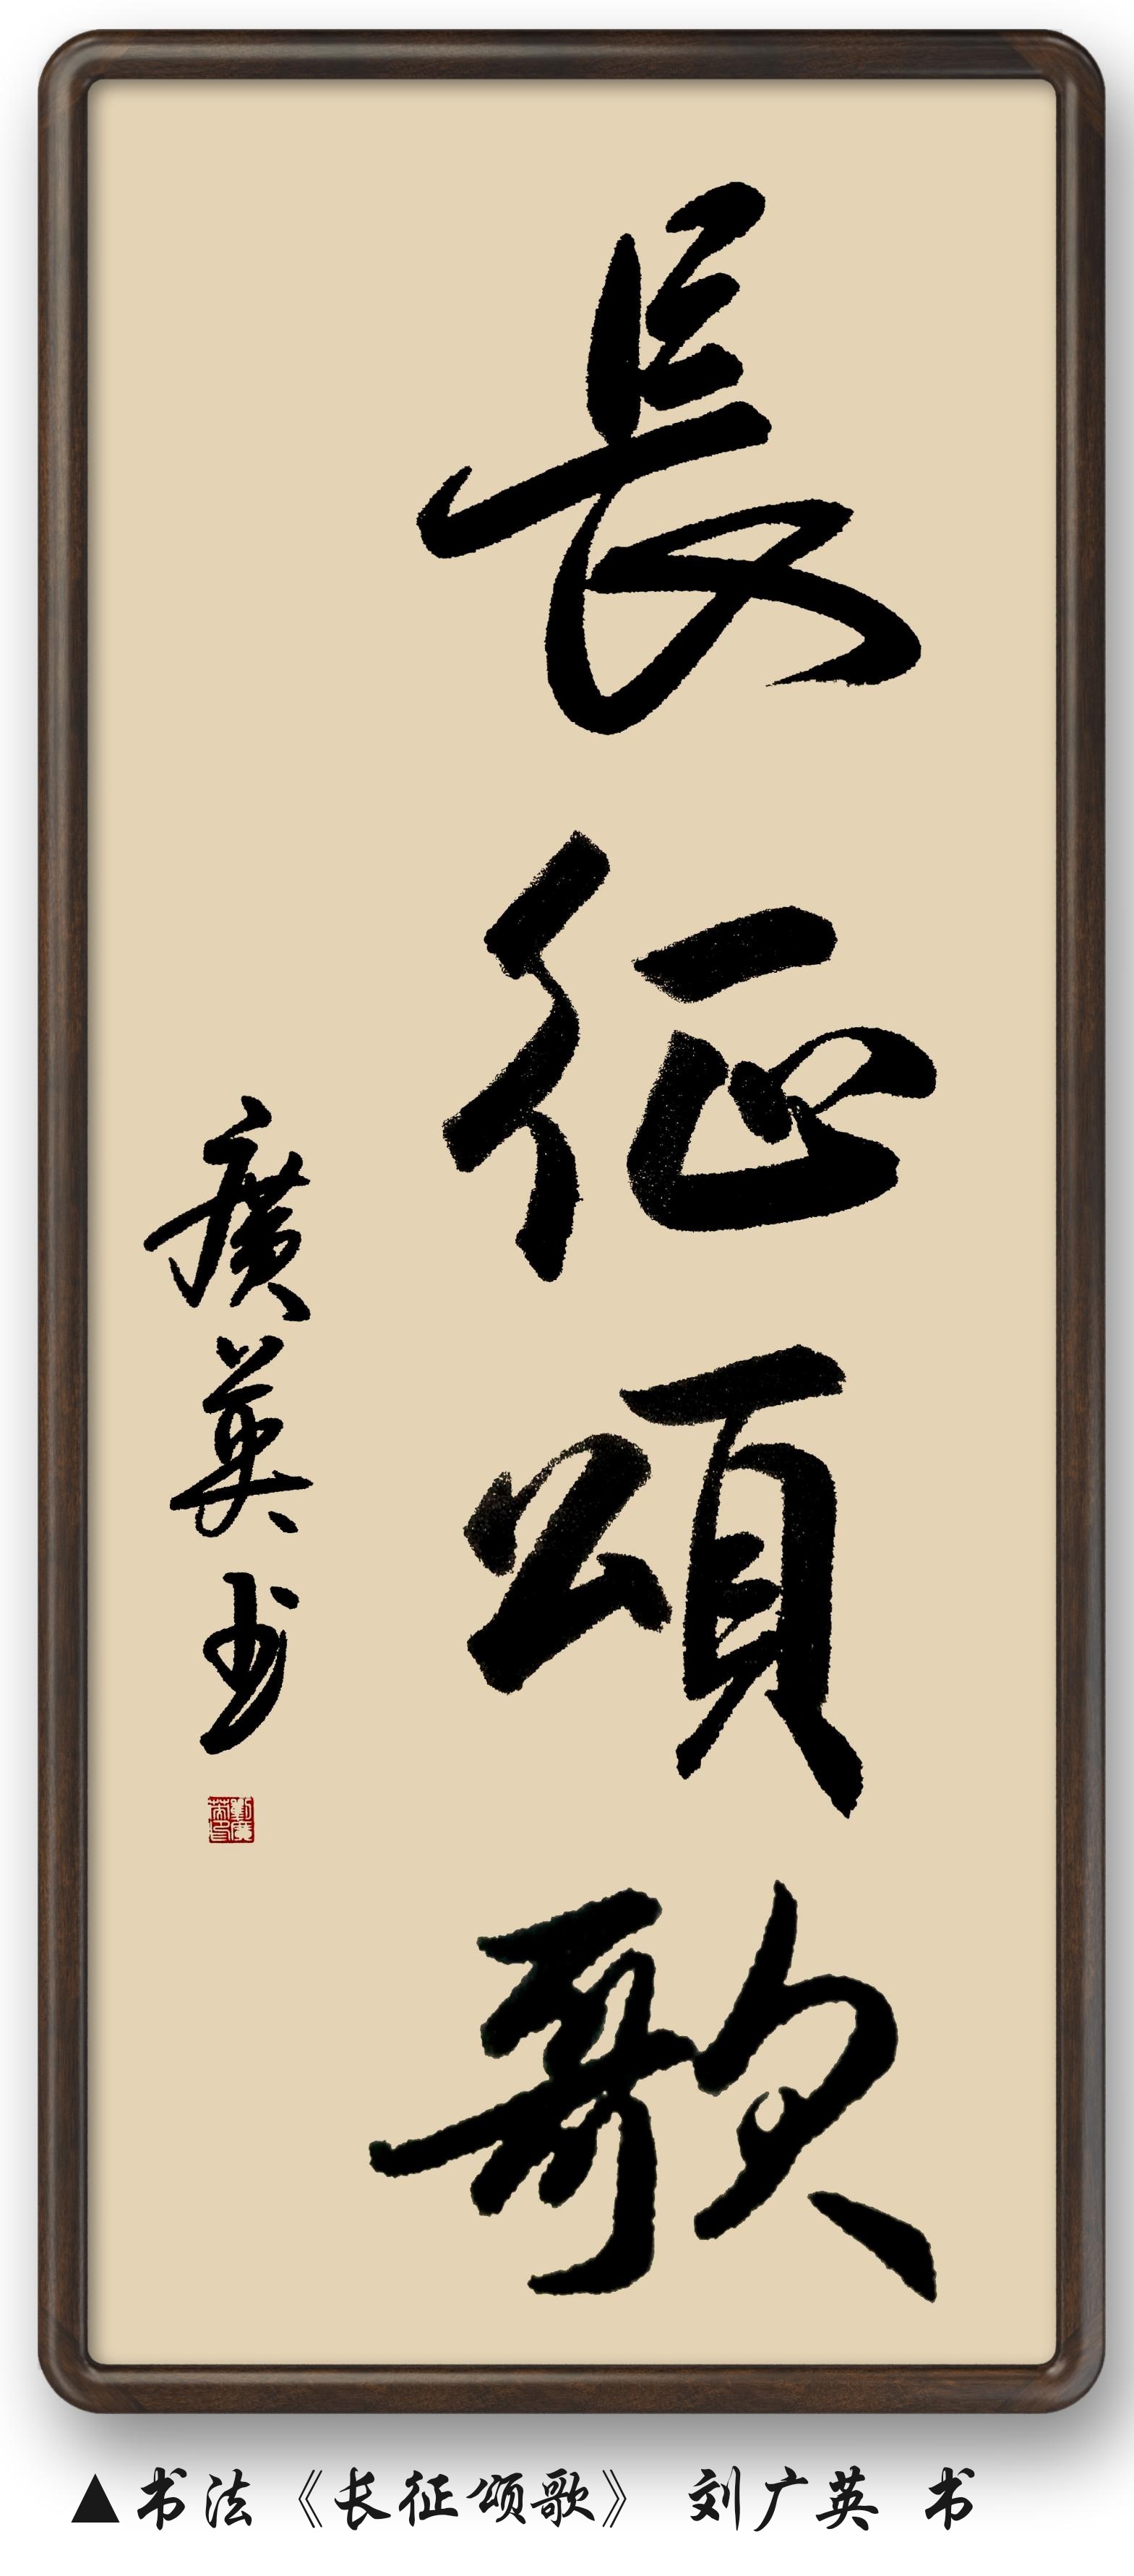 長征頌歌
廣英书
劉廣英印
▲书法《长征颂歌》 刘广英 书